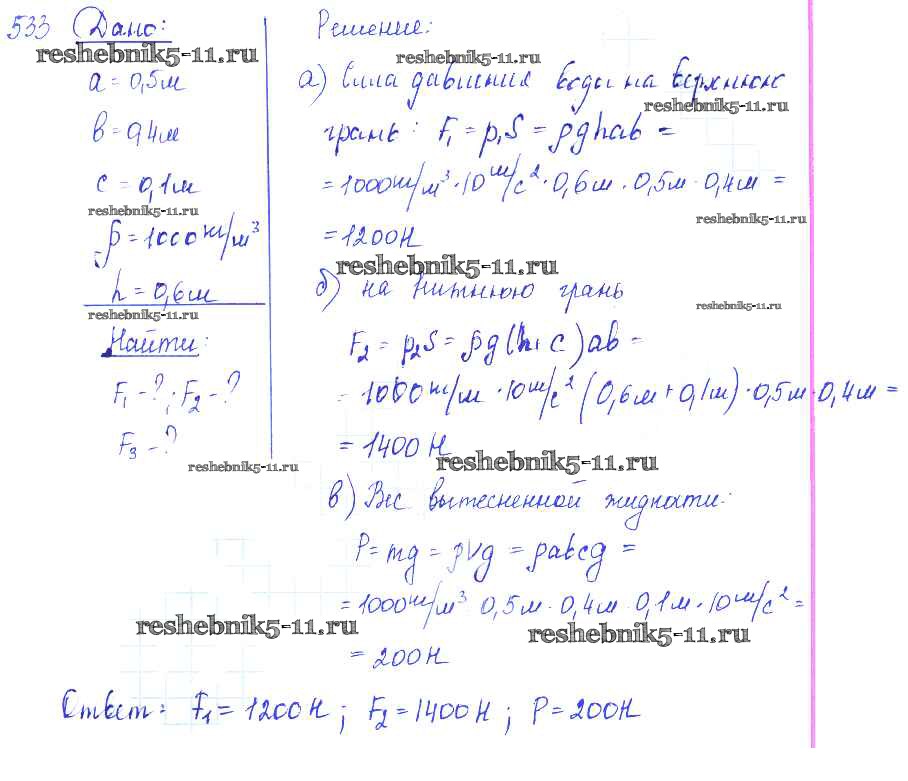 533 Дано:
reshebnik5-11.ru
a = 0,5м
в = 0,4м
c = 0,1м
reshebnik5-11.ru
ρ = 1000 кг/м³
h = 0,6м
reshebnik5-11.ru
Найти:
F₁ - ?; F₂ - ?
F₃ - ?
reshebnik5-11.ru
Решение:
reshebnik5-11.ru
а) Сила давления воды на верхнюю
reshebnik5-11.ru
грань: F₁ = p₁S = ρghab =
= 1000 кг/м³ · 10 м/с² · 0,6м · 0,5м · 0,4м =
reshebnik5-11.ru
= 1200Н
reshebnik5-11.ru
б) на нижнюю грань
reshebnik5-11.ru
F₂ = p₂S = ρg(h+c)ab =
= 1000 кг/м · 10 м/с² (0,6м + 0,1м) · 0,5м · 0,4м =
= 1400 Н
reshebnik5-11.ru
в) Вес вытесненной жидкости:
P = mg = ρVg = ρabcg =
= 1000 кг/м³ 0,5м · 0,4м · 0,1м · 10 м/с² =
reshebnik5-11.ru
reshebnik5-11.ru
= 200Н
Ответ: F₁ = 1200Н; F₂ = 1400Н; P = 200Н